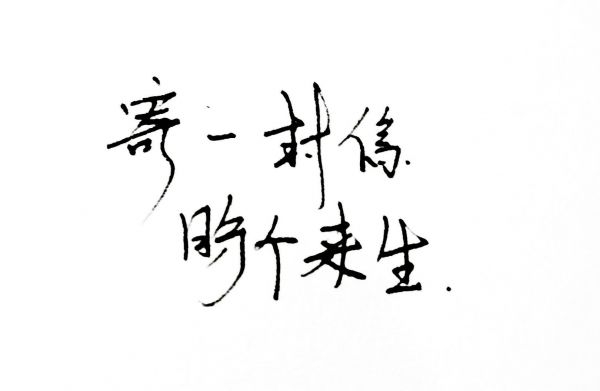 寄一封信
盼个来生.